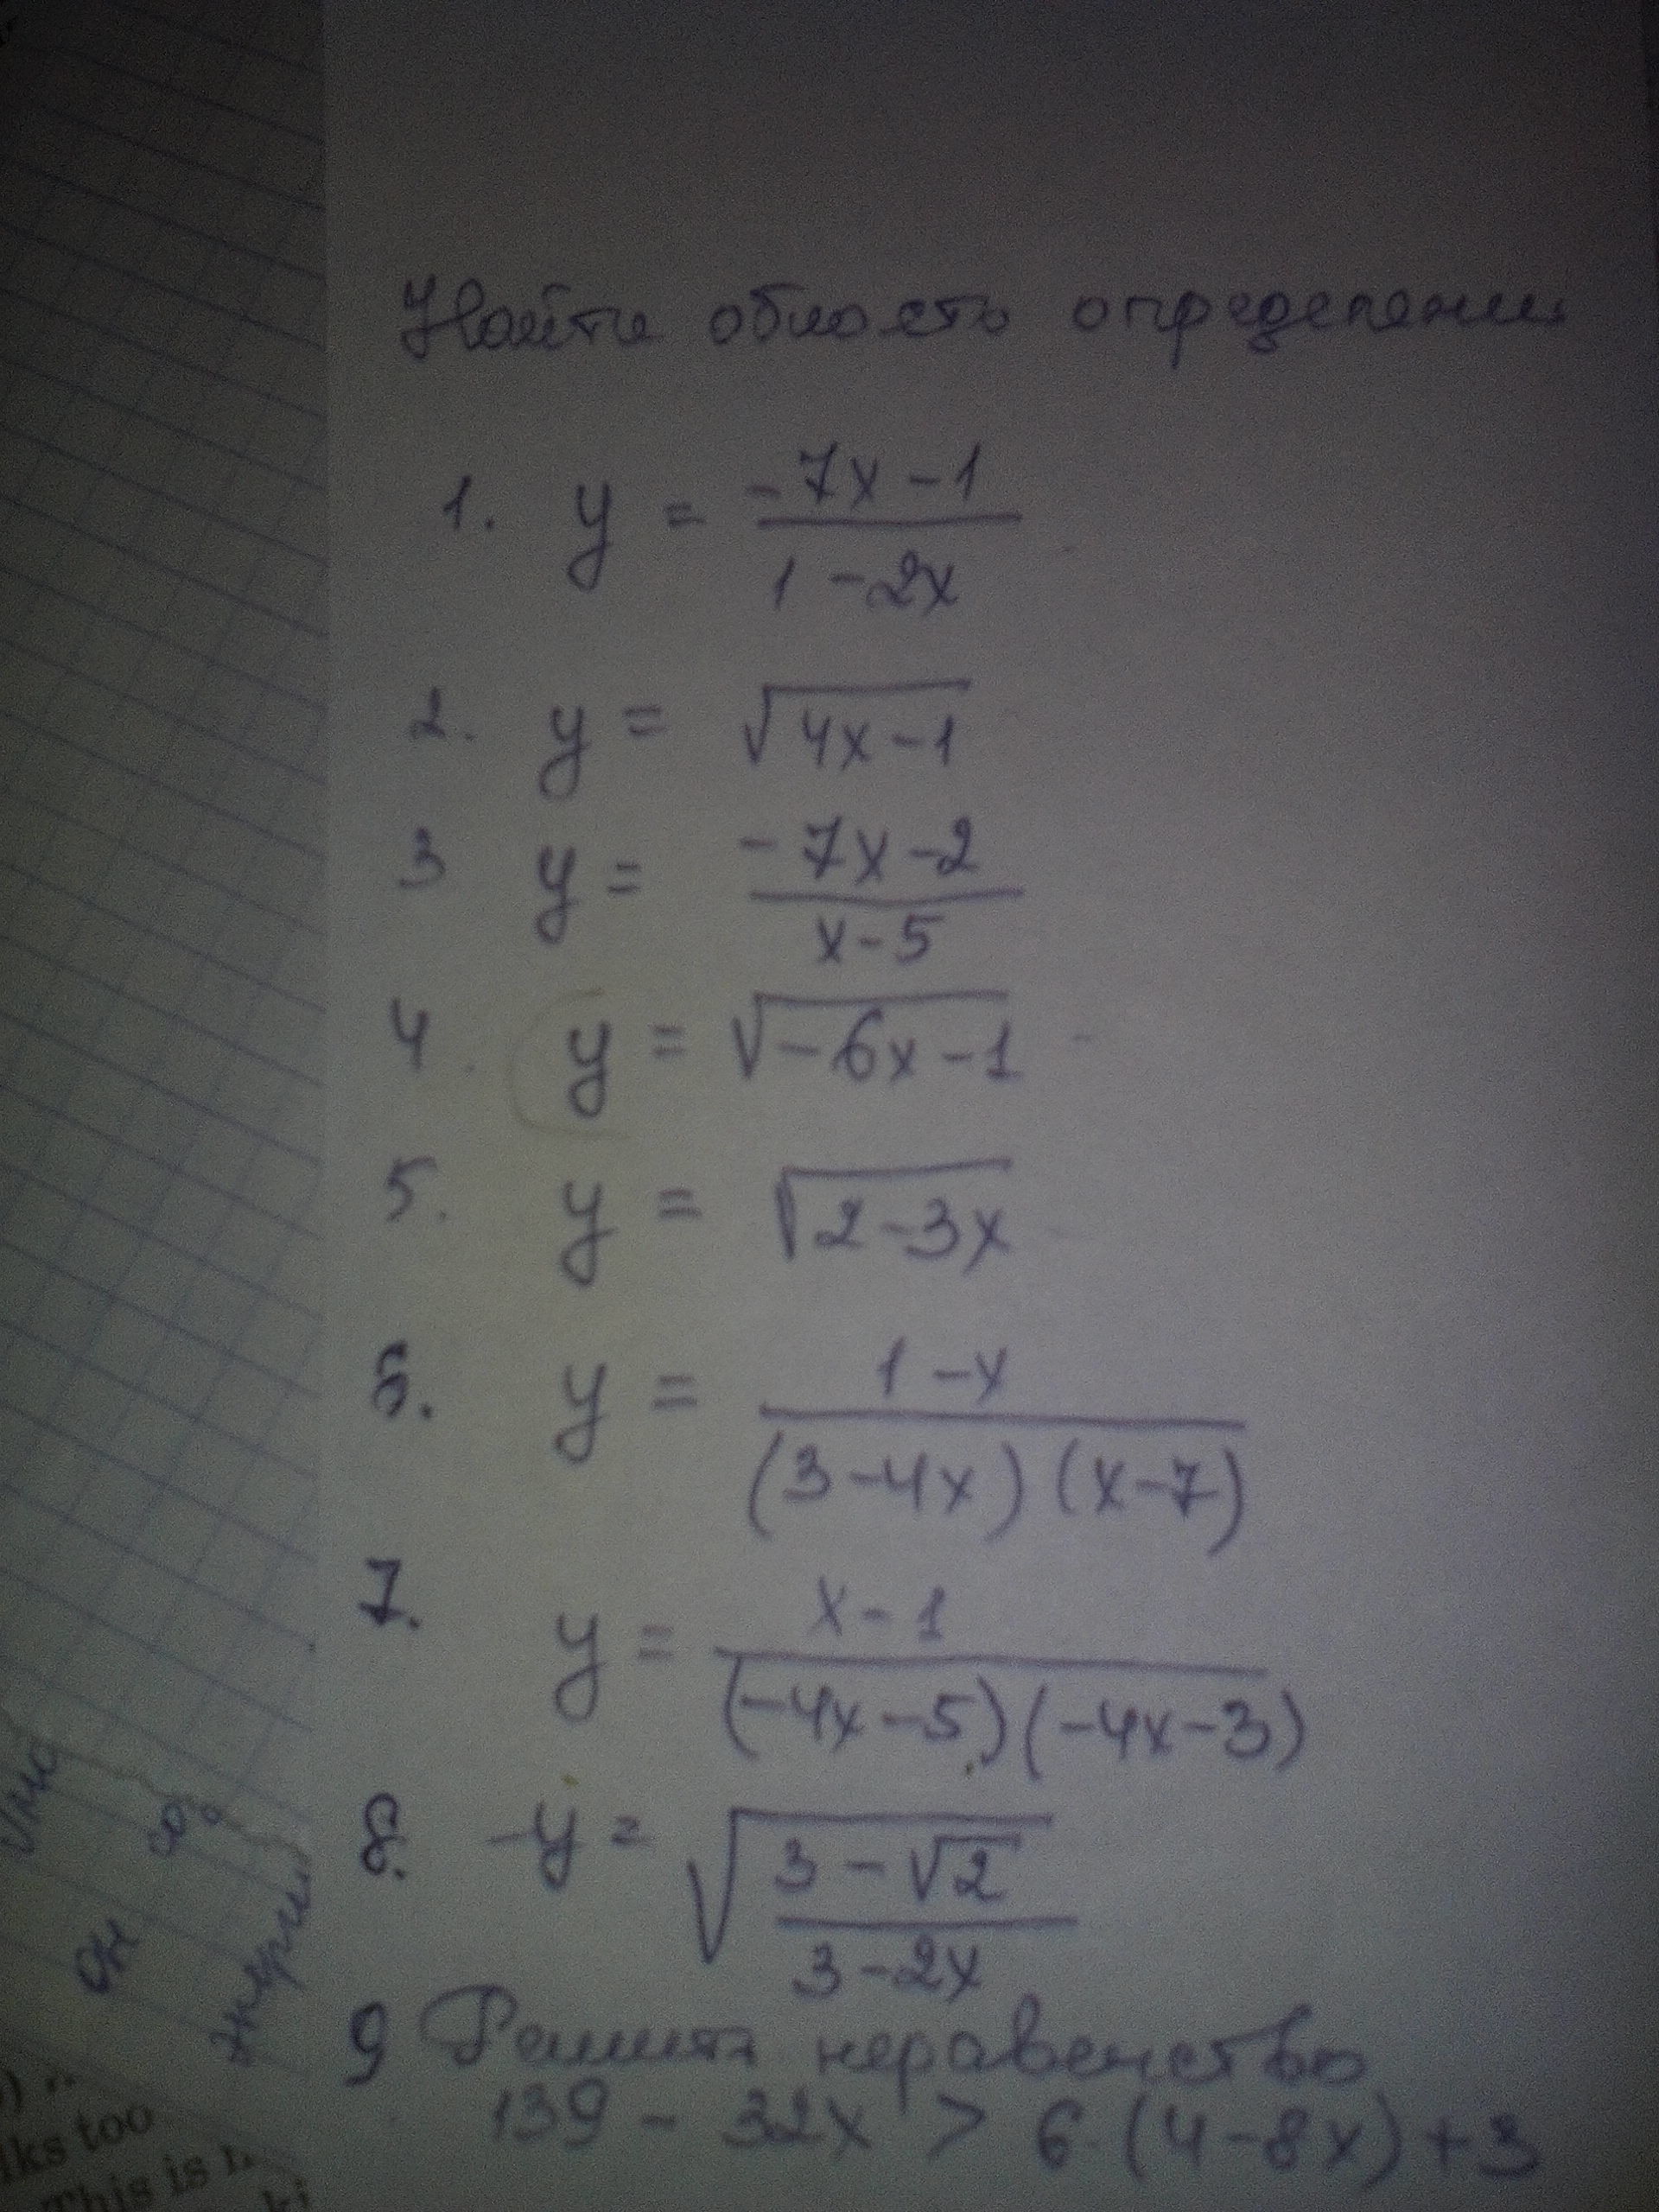 Найти область определения
1. y = \frac{-7x-1}{1-2x}
2. y = \sqrt{4x-1}
3 y = \frac{-7x-2}{x-5}
4. y = \sqrt{-6x-1}
5. y = \sqrt{2-3x}
6. y = \frac{1-x}{(3-4x)(x-7)}
7. y = \frac{x-1}{(-4x-5)(-4x-3)}
8. y = \sqrt{\frac{3-\sqrt{2}}{3-2x}}
9 Решить неравенство
139 - 32x > 6·(4-8x)+3
lks too
This is